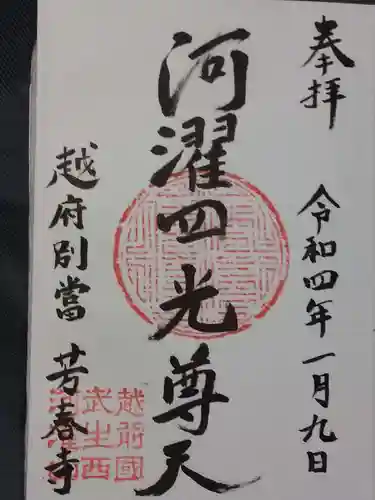 奉拝
令和四年一月九日
河濯四光尊天
越府別當 芳春寺
越前國
武生西